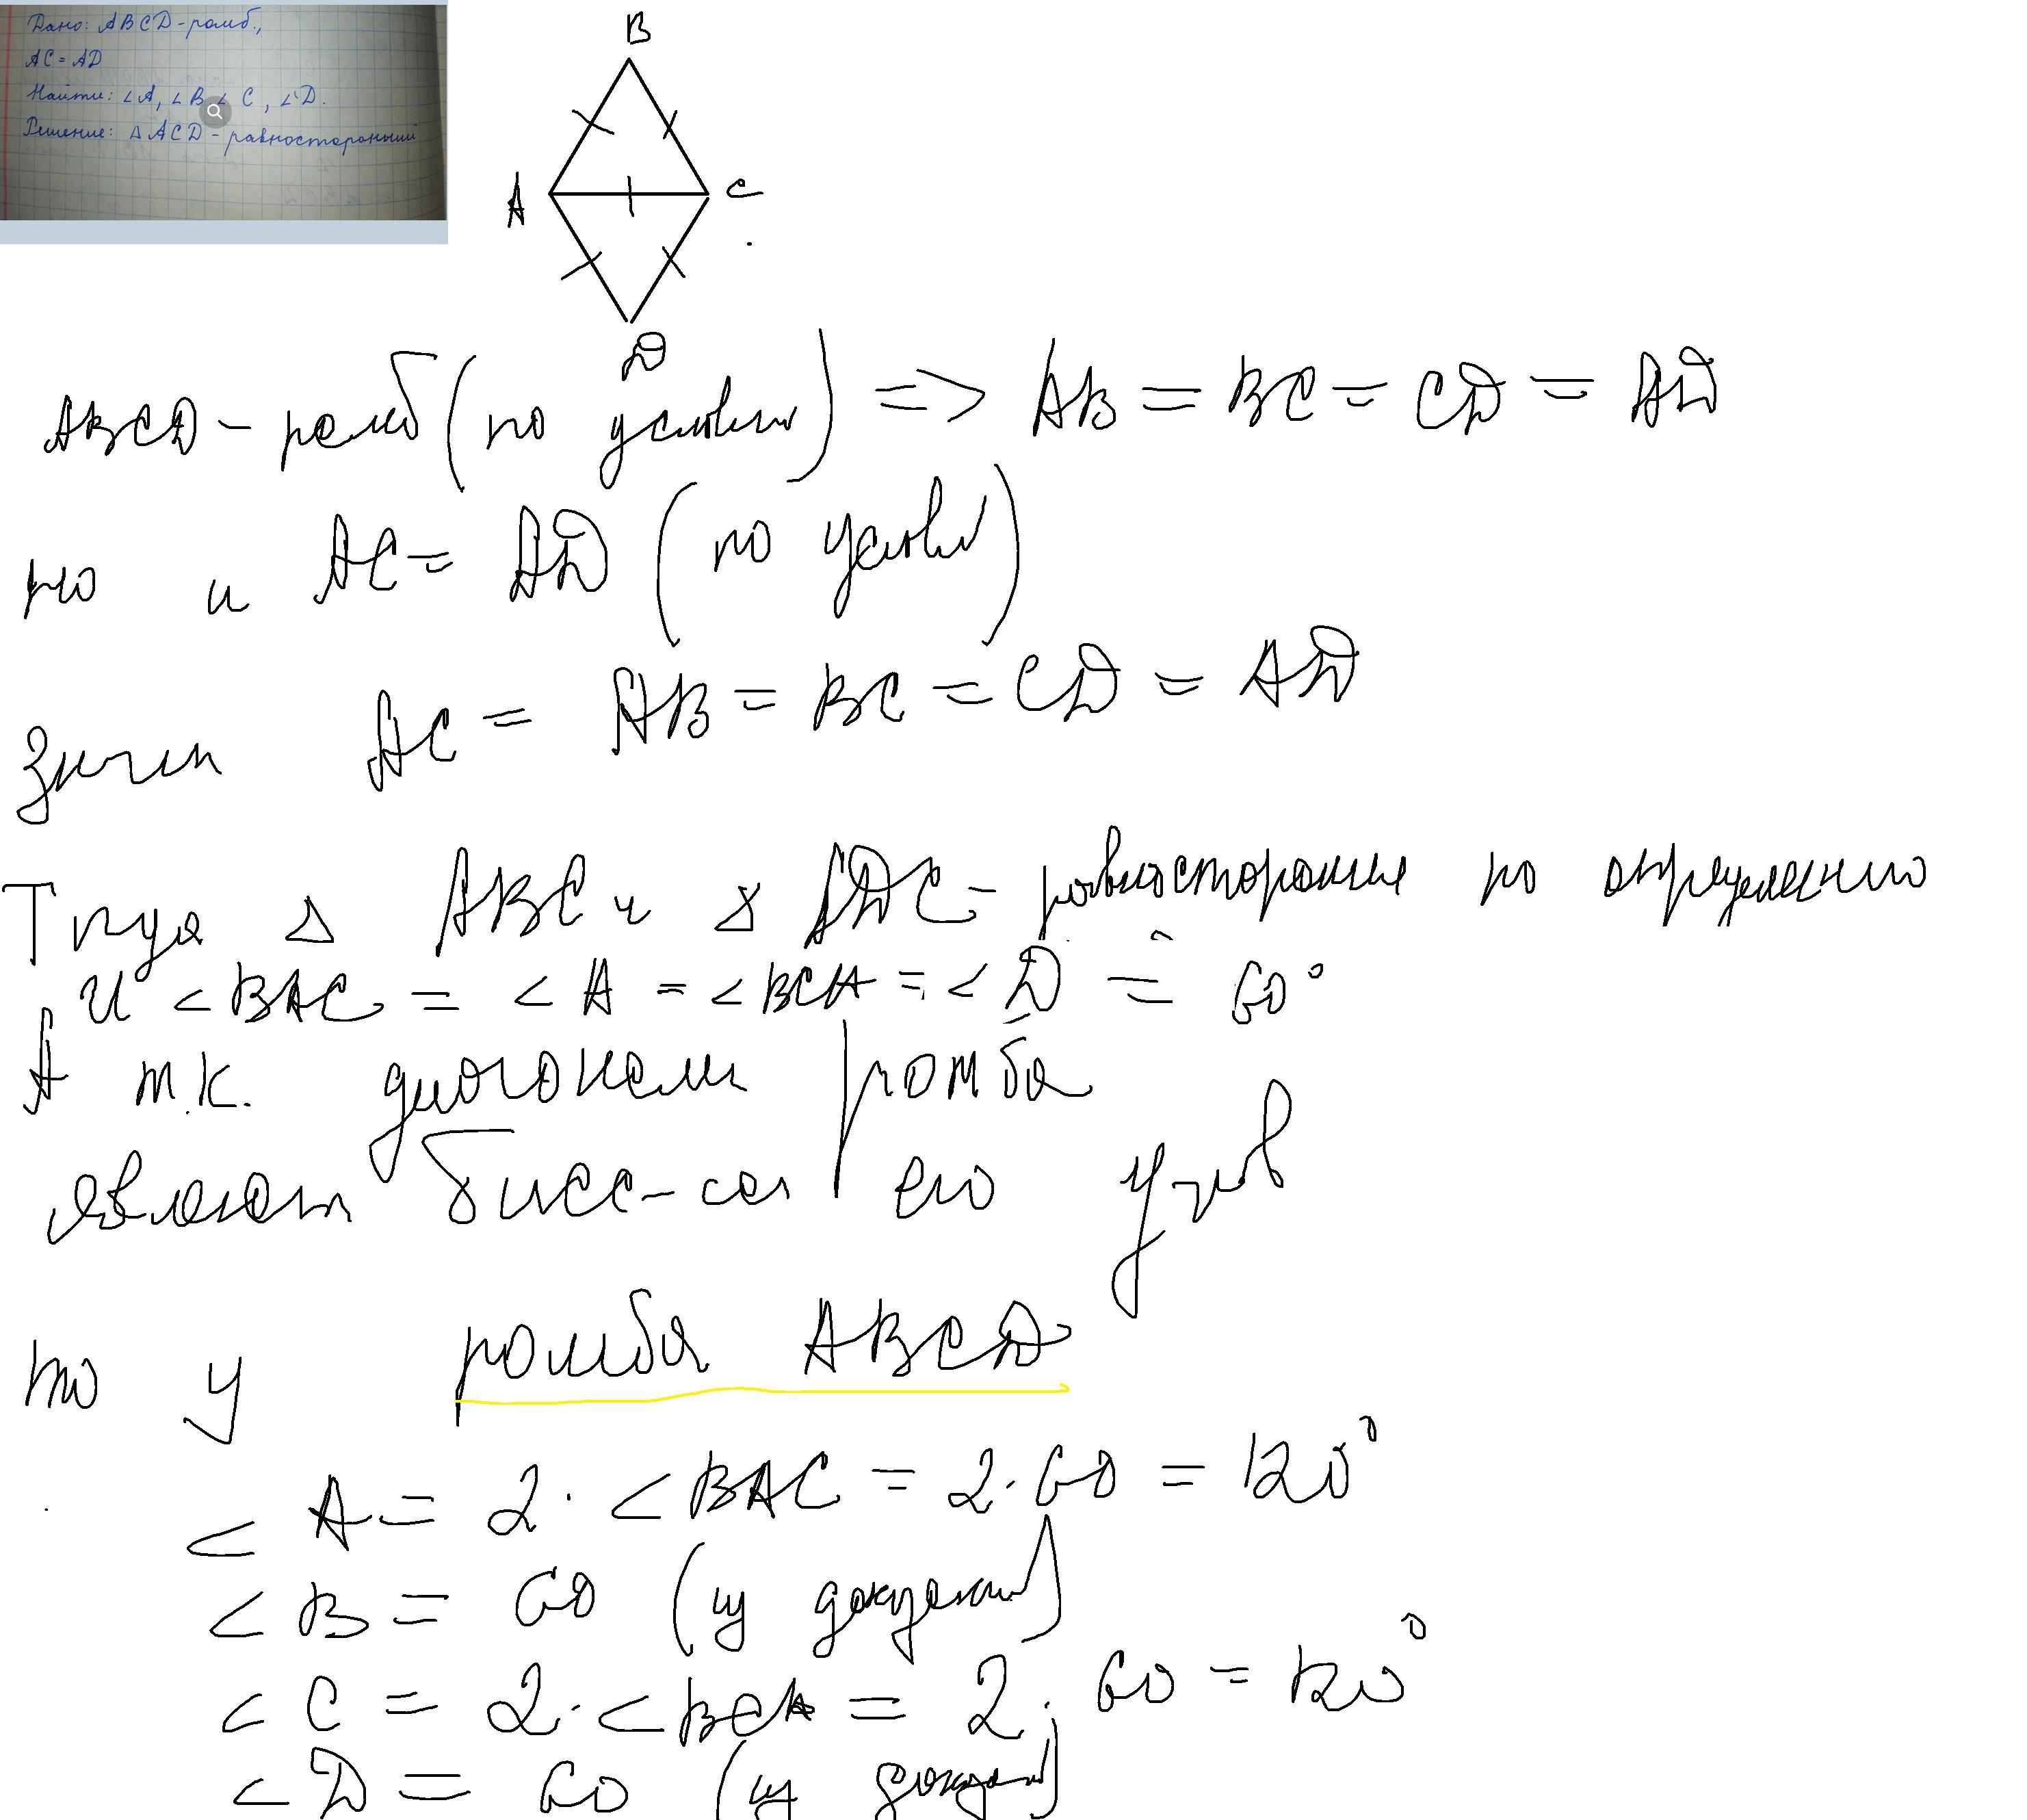 Дано: ABCD - ромб.,
AC = AD
Найти: ∠A, ∠B ∠C, ∠D.
Решение: △ ACD - равностороный
B
A
C
D
ABCD - ромб (по условию) => AB = BC = CD = AD
но и AC = AD (по услови)
Значи AC = AB = BC = CD = AD
Тогда △ ABC и △ ADC - равносторонние по определению
И < BAC = < A = < BCA = < D = 60°
А т.к. диагонали ромба
являют бисс-сами его углов
то у ромба ABCD
< A = 2 · < BAC = 2 · 60 = 120°
< B = 60 (из доказан)
< C = 2 · < BCA = 2 · 60 = 120°
< D = 60 (из доказан)